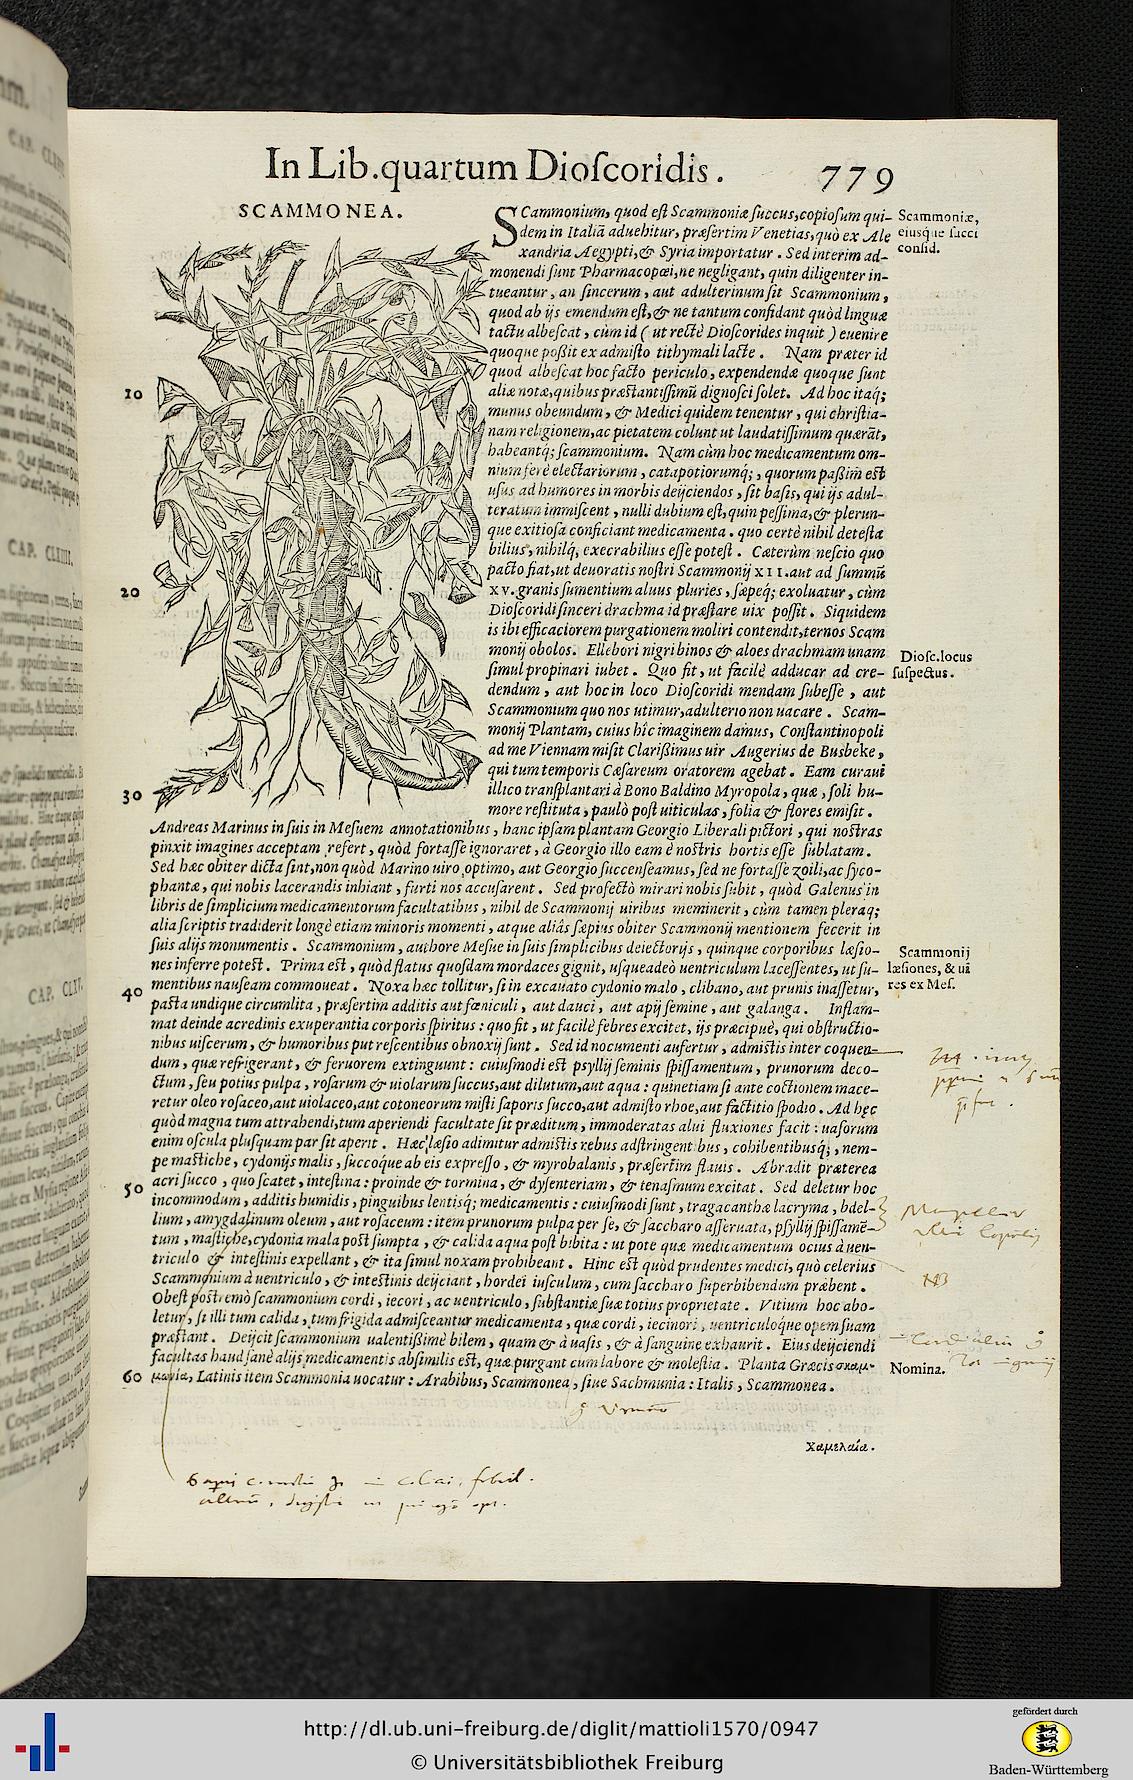 In Lib.quartum Dioſcoridis.
779
SCAMMONEA.
SCammonium, quod eſt Scammoniæ ſuccus,copioſum qui-
dem in Italiā aduehitur, præſertim Venetias,quò ex Ale
xandria Aegypti,& Syria importatur. Sed interim ad-
monendi ſunt Pharmacopœi,ne negligant, quin diligenter in-
tueantur, an ſincerum, aut adulterinum ſit Scammonium,
quod ab ijs emendum eſt,& ne tantum confidant quòd linguæ
tactu albeſcat, cùm id ( ut rectè Dioſcorides inquit ) euenire
quoque poßit ex admiſto tithymali lacte. Nam præter id
quod albeſcat hoc facto periculo, expendendæ quoque ſunt
aliæ notæ,quibus præſtantiſſimū dignoſci ſolet. Ad hoc itaq;
munus obeundum, & Medici quidem tenentur, qui chriſtia-
nam religionem,ac pietatem colunt ut laudatiſſimum quærāt,
habeantq; ſcammonium. Nam cùm hoc medicamentum om-
nium ferè electariorum, catapotiorumq;, quorum paßim eſt
uſus ad humores in morbis deijciendos, ſit baſis, qui ijs adul-
teratum immiſcent, nulli dubium eſt,quin peſſima,& plerun-
que exitioſa conficiant medicamenta. quo certè nihil deteſta
bilius, nihilq; execrabilius eſſe poteſt. Cæterùm neſcio quo
pacto fiat,ut deuoratis noſtri Scammonij XII.aut ad ſummū
xv.granis ſumentium aluus pluries, ſæpeq; exoluatur, cùm
Dioſcoridi ſinceri drachma id præſtare uix poſſit. Siquidem
is ibi efficaciorem purgationem moliri contendit,ternos Scam
monij obolos. Ellebori nigri binos & aloes drachmam unam
ſimul propinari iubet. Quo fit, ut facilè adducar ad cre-
dendum, aut hoc in loco Dioſcoridi mendam ſubeſſe, aut
Scammonium quo nos utimur,adulterio non uacare. Scam-
monij Plantam, cuius hîc imaginem damus, Conſtantinopoli
ad me Viennam miſit Clarißimus uir Augerius de Busbeke,
qui tum temporis Cæſareum oratorem agebat. Eam curaui
illico tranſplantari à Bono Baldino Myropola, quæ, ſoli hu-
more reſtituta, paulò poſt uiticulas, folia & flores emiſit.
Andreas Marinus in ſuis in Meſuem annotationibus, hanc ipſam plantam Georgio Liberali pictori, qui noſtras
pinxit imagines acceptam refert, quòd fortaſſe ignoraret, à Georgio illo eam è noſtris hortis eſſe ſublatam.
Sed hæc obiter dicta ſint,non quòd Marino uiro optimo, aut Georgio ſuccenſeamus, ſed ne fortaſſe zoili,ac ſyco-
phantæ, qui nobis lacerandis inhiant, furti nos accuſarent. Sed profectò mirari nobis ſubit, quòd Galenus in
libris de ſimplicium medicamentorum facultatibus, nihil de Scammonij uiribus meminerit, cùm tamen pleraq;
alia ſcriptis tradiderit longè etiam minoris momenti, atque aliâs ſæpius obiter Scammonij mentionem fecerit in
ſuis alijs monumentis. Scammonium, authore Meſue in ſuis ſimplicibus deiectorijs, quinque corporibus læſio-
nes inferre poteſt. Prima eſt, quòd flatus quoſdam mordaces gignit, uſqueadeò uentriculum laceſſentes, ut ſu-
mentibus nauſeam commoueat. Noxa hæc tollitur, ſi in excauato cydonio malo, clibano, aut prunis inaſſetur,
paſta undique circumlita, præſertim additis aut fœniculi, aut dauci, aut apij ſemine, aut galanga. Inflam-
mat deinde acredinis exuperantia corporis ſpiritus: quo fit, ut facilè febres excitet, ijs præcipuè, qui obſtructio-
nibus uiſcerum, & humoribus putreſcentibus obnoxij ſunt. Sed id nocumenti aufertur, admiſtis inter coquen-
dum, quæ refrigerant, & feruorem extinguunt: cuiuſmodi eſt pſyllij ſeminis ſpiſſamentum, prunorum deco-
ctum, ſeu potius pulpa, roſarum & uiolarum ſuccus,aut dilutum,aut aqua: quinetiam ſi ante coctionem mace-
retur oleo roſaceo,aut uiolaceo,aut cotoneorum miſti ſaporis ſucco,aut admiſto rhoe,aut factitio ſpodio. Ad hęc
quòd magna tum attrahendi,tum aperiendi facultate ſit præditum, immoderatas alui fluxiones facit: uaſorum
enim oſcula pluſquam par ſit aperit. Hæc læſio adimitur admiſtis rebus adſtringentibus, cohibentibusq;, nem-
pe maſtiche, cydonijs malis, ſuccoque ab eis expreſſo, & myrobalanis, præſertim flauis. Abradit præterea
acri ſucco, quo ſcatet, inteſtina: proinde & tormina, & dyſenteriam, & tenaſmum excitat. Sed deletur hoc
incommodum, additis humidis, pinguibus lentisq; medicamentis: cuiuſmodi ſunt, tragacanthæ lacryma, bdel-
lium, amygdalinum oleum, aut roſaceum: item prunorum pulpa per ſe, & ſaccharo aſſeruata, pſyllij ſpiſſamē-
tum, maſtiche,cydonia mala poſt ſumpta, & calida aqua poſt bibita: ut pote quæ medicamentum ocius à uen-
triculo & inteſtinis expellant, & ita ſimul noxam prohibeant. Hinc eſt quòd prudentes medici, quò celerius
Scammonium à uentriculo, & inteſtinis deijciant, hordei iuſculum, cum ſaccharo ſuperbibendum præbent.
Obeſt poſtremò ſcammonium cordi, iecori, ac uentriculo, ſubſtantiæ ſuæ totius proprietate. Vitium hoc abo-
letur, ſi illi tum calida, tum frigida admiſceantur medicamenta, quæ cordi, iecinori, uentriculoque opem ſuam
præſtant. Deijcit ſcammonium ualentißimè bilem, quam & à uaſis, & à ſanguine exhaurit. Eius deijciendi
facultas haud ſanè alijs medicamentis abſimilis eſt, quæ purgant cum labore & moleſtia. Planta Græcis σκαμ-
μωνία, Latinis item Scammonia uocatur: Arabibus, Scammonea, ſiue Sachmunia: Italis, Scammonea.
Χαμελαία.
Scammoniæ,
eiusque ſucci
conſid.
Dioſc.locus
ſuſpectus.
Scammonij
læſiones, & ui
res ex Meſ.
NB
Nomina.
10
20
30
40
50
60
CAP. CLXIIII.
CAP. CLXV.
http://dl.ub.uni-freiburg.de/diglit/mattioli1570/0947
© Universitätsbibliothek Freiburg
gefördert durch
Baden-Württemberg